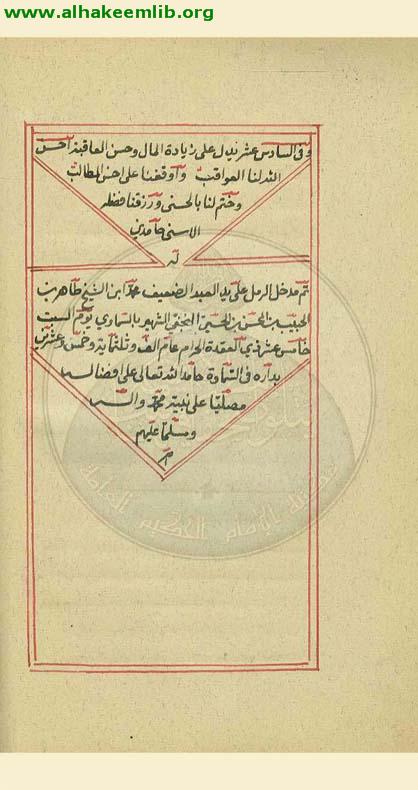 www.alhakeemlib.org
وفى السادس عشر يدل على زيادة المال وحسن العاقبة احسن
الله لنا العواقب واوقفنا على احسن المطالب
وختم لنا بالحسنى ورزقنا فضله
الاسنى حامدين
له
تم مدخل الرمل على يد العبد الضعيف محمد ابن الشيخ طاهر بن
حبيب بن الحسين بن المحسن النجفي الشهير بالسماوي يوم السبت
خامس عشر ذي القعدة الحرام عام الف وثلثماية وخمس وعشرين
بداره في السماوة حامدا لله تعالى على افضاله
مصليا على نبيه محمد واله
ومسلما عليهم
م
مكتبة الإمام الحكيم العامة